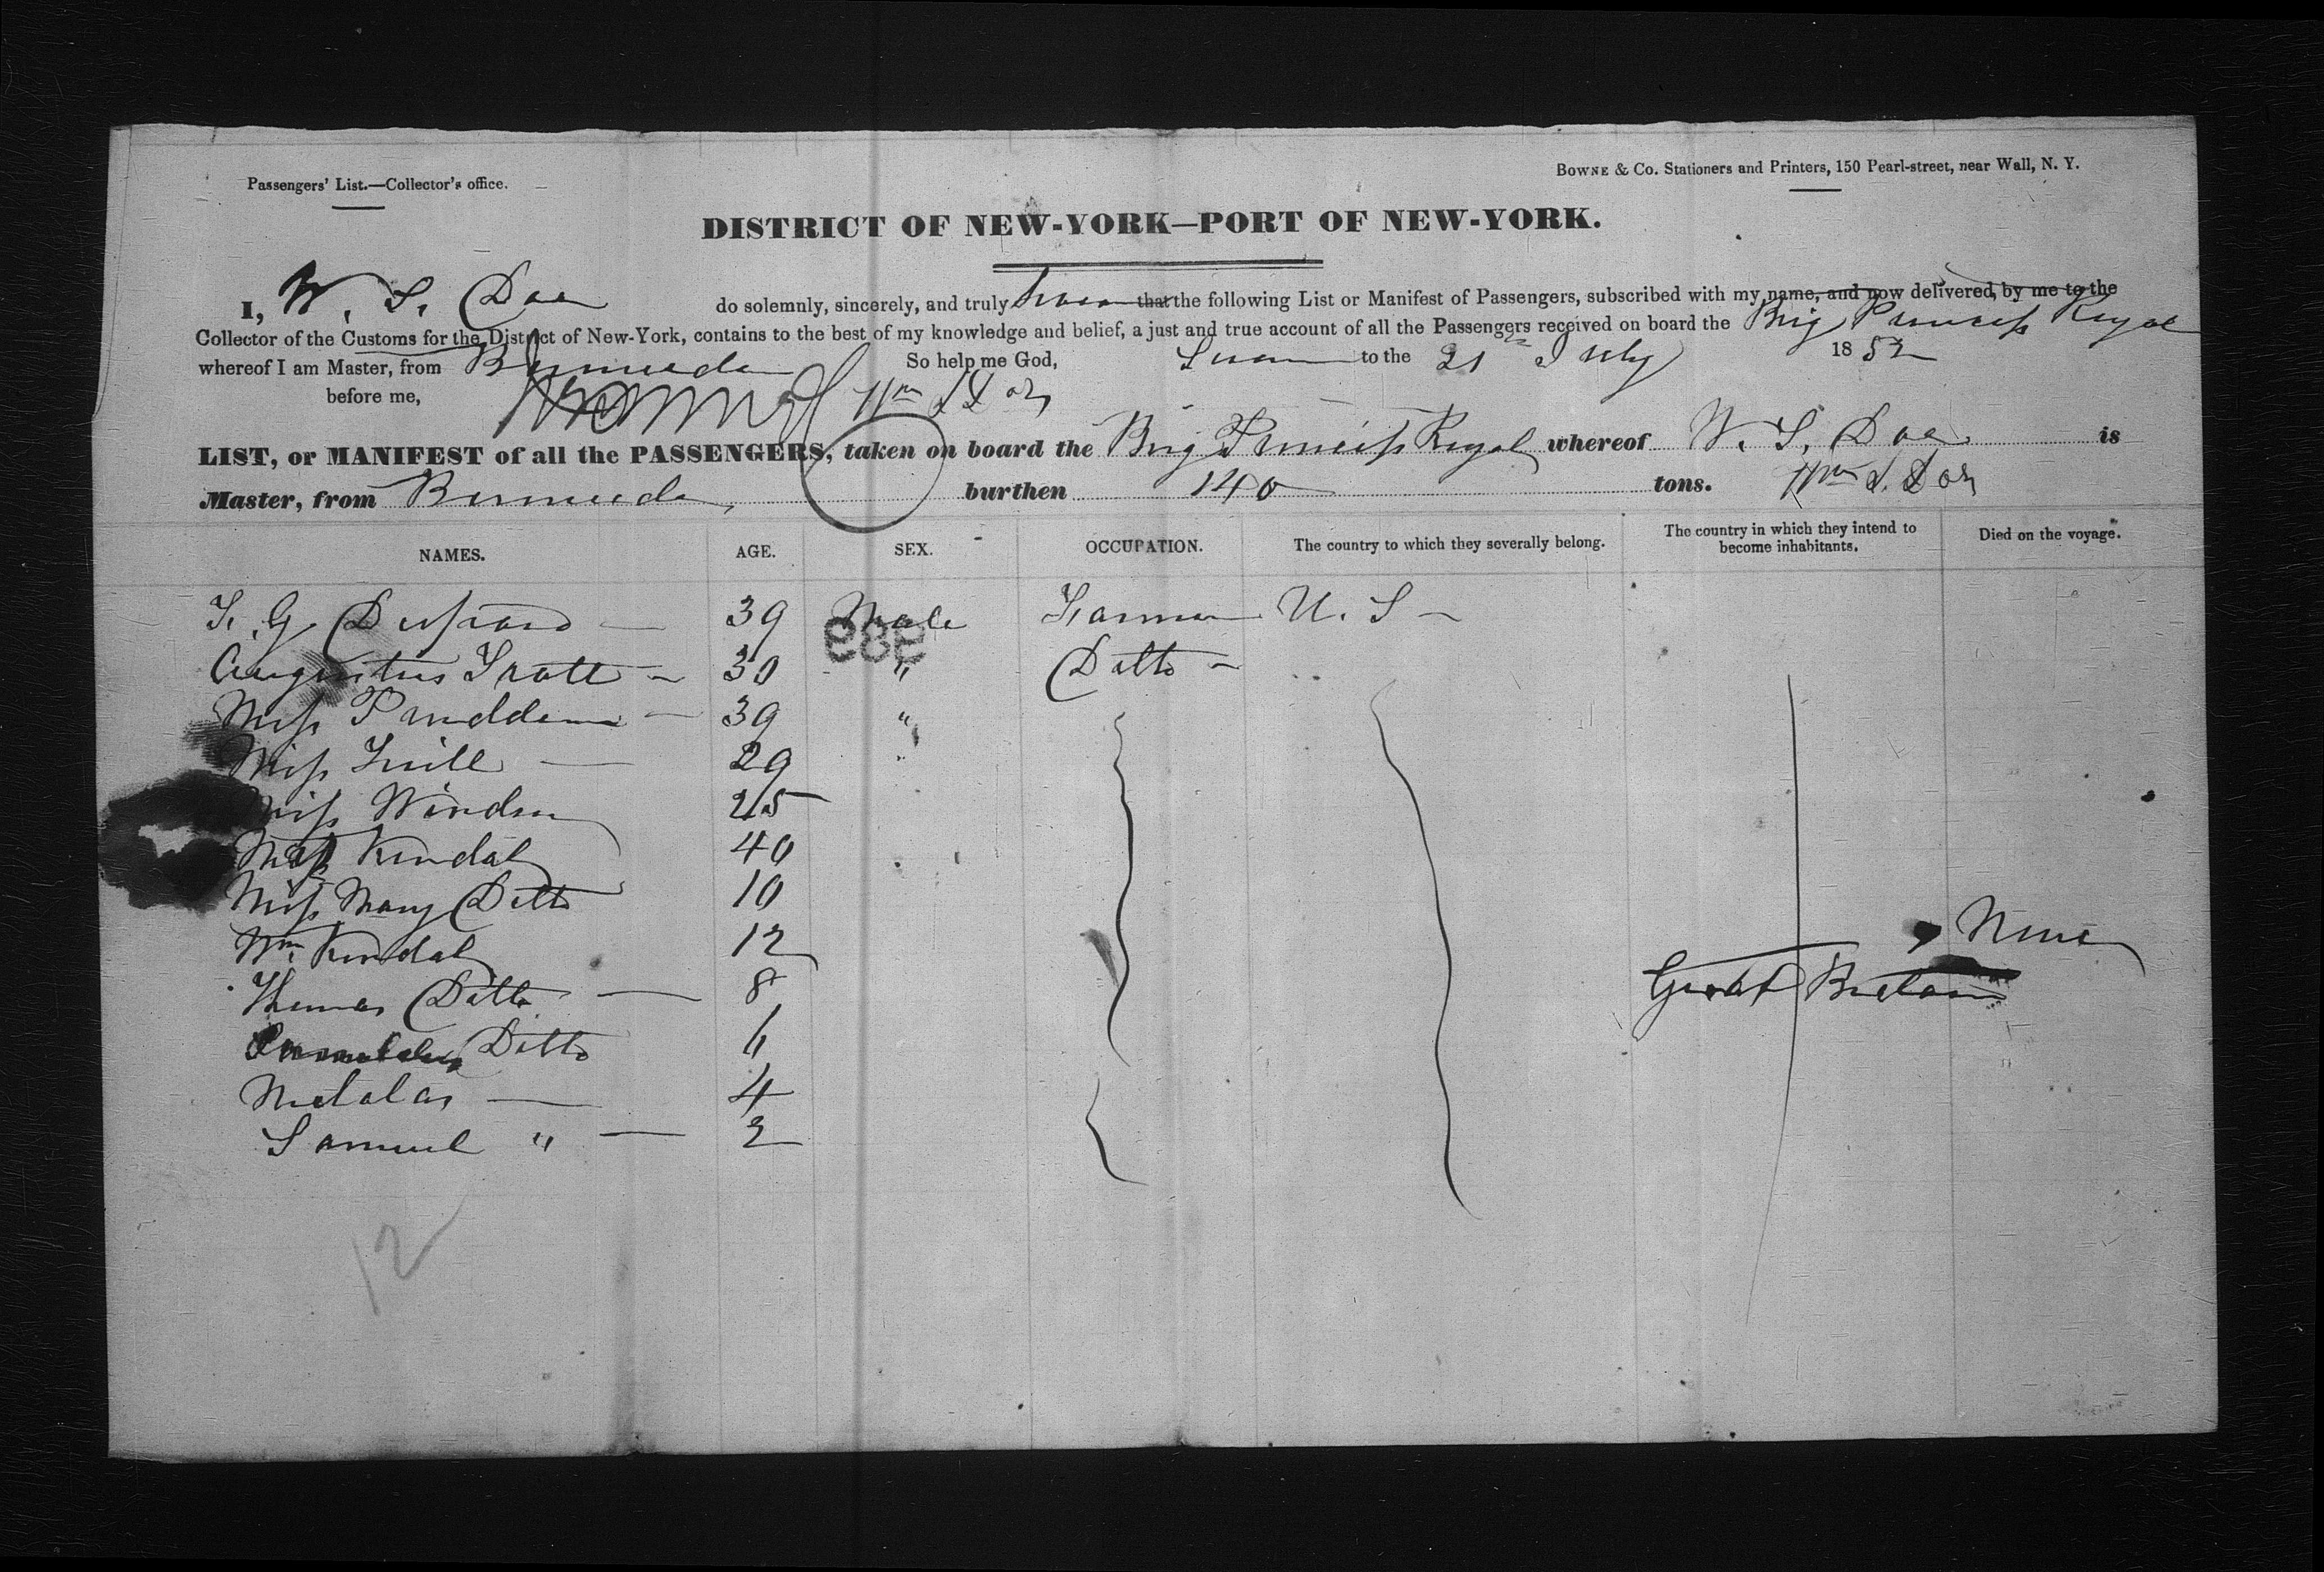 Passengers' List.—Collector's office.
BOWNE & Co. Stationers and Printers, 150 Pearl-street, near Wall, N. Y.
DISTRICT OF NEW-YORK—PORT OF NEW-YORK.
I, W. S. Doe do solemnly, sincerely, and truly swear that the following List or Manifest of Passengers, subscribed with my name, and now delivered by me to the
Collector of the Customs for the District of New-York, contains to the best of my knowledge and belief, a just and true account of all the Passengers received on board the Brig Princess Royal
whereof I am Master, from Bermuda So help me God, Sworn to the 21 July 1852
before me, Wm S
LIST, or MANIFEST of all the PASSENGERS, taken on board the Brig Princess Royal whereof W. S. Doe is
Master, from Bermuda, burthen 140 tons. Wm S.
NAMES. AGE. SEX. OCCUPATION. The country to which they severally belong. The country in which they intend to become inhabitants. Died on the voyage.
G. 39 Male Farmer U. S
Augustus Trott 30 " Ditto
Miss Prudden 39 "
Miss 29
Miss 25
Kendal 40
Miss Mary Ditto 10
Wm. Kendal 12 None
Thomas Ditto 8 Great Britain
Ditto 6
4
Samuel " 2
12
989